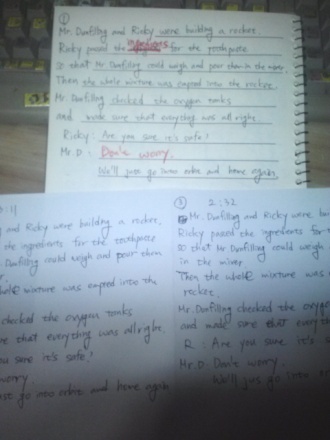 ①
Mr. Dunfilling and Ricky were building a rocket.
Ricky passed the ingredients for the toothpaste
so that Mr Dunfilling could weigh and pour them in the mixer.
Then the whole mixture was emptied into the rocket.
Mr. Dunfilling checked the oxygen tanks
and made sure that everything was all right.
Ricky: Are you sure it's safe?
Mr. D: Don't worry.
We'll just go into orbit and home again.
:11
and Ricky were building a rocket,
the ingredients for the toothpaste
Dunfilling could weigh and pour them
mixture was emptied into the
checked the oxygen tanks
that everything was allright.
you sure it's safe?
worry.
just go into orbit and home again
③ 2:32
Mr. Dunfilling and Ricky were
Ricky passed the ingredients for
so that Mr Dunfilling could weigh
in the mixer
Then the whole mixture was
rocket.
Mr. Dunfilling checked the
and made sure that
R: Are you sure it's
Mr. D: Don't worry
We'll just go into